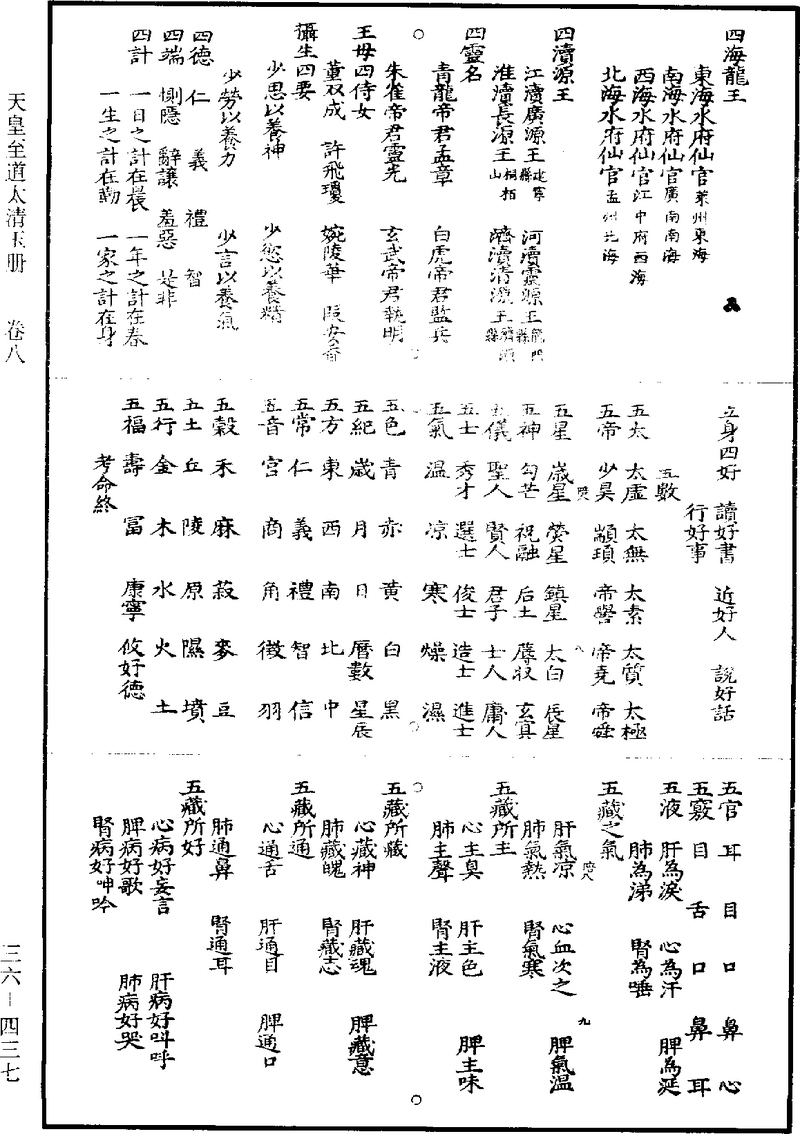 四海龍王
東海水府仙官萊州東海
南海水府仙官廣南南海
西海水府仙官江中府西海
北海水府仙官孟州北海
四瀆源王
江瀆廣源王建寧縣 河瀆靈源王龍門縣
淮瀆長源王桐栢山 濟瀆清源王濟源縣
四靈名
青龍帝君孟章 白虎帝君監兵
朱雀帝君靈光 玄武帝君執明
王母四侍女
董双成 許飛瓊 婉陵華 叚安香
攝生四要
少思以養神 少慾以養精
少勞以養力 少言以養氣
四德 仁 義 禮 智
四端 惻隱 辭讓 羞惡 是非
四計 一日之計在晨 一年之計在春
一生之計在勤 一家之計在身
立身四好 讀好書 近好人 說好話
行好事
五數
五太 太虛 太無 太素 太質 太極
五帝 少昊 顓頊 帝嚳 帝堯 帝舜
五星 歲星 熒星 鎮星 太白 辰星
五神 勾芒 祝融 后土 蓐收 玄冥
五儀 聖人 賢人 君子 士人 庸人
五士 秀才 選士 俊士 造士 進士
五氣 溫 凉 寒 燥 濕
五色 青 赤 黃 白 黑
五紀 歲 月 日 曆數 星辰
五方 東 西 南 北 中
五常 仁 義 禮 智 信
五音 宮 商 角 徵 羽
五穀 禾 麻 菽 麥 豆
五土 丘 陵 原 隰 墳
五行 金 木 水 火 土
五福 壽 冨 康寧 攸好德
考命終
五官 耳 目 口 鼻 心
五竅 目 舌 口 鼻 耳
五液 肝為淚 心為汗 脾為涎
肺為涕 腎為唾
五藏之氣
肝氣凉 心血次之 脾氣溫
肺氣熱 腎氣寒
五藏所主
心主臭 肝主色 脾主味
肺主聲 腎主液
五藏所藏
心藏神 肝藏魂 脾藏意
肺藏魄 腎藏志
五藏所通
心通舌 肝通目 脾通口
肺通鼻 腎通耳
五藏所好
心病好妄言 肝病好叫呼
脾病好歌 肺病好哭
腎病好呻吟
九
天皇至道太清玉册 卷八
三六－四三七